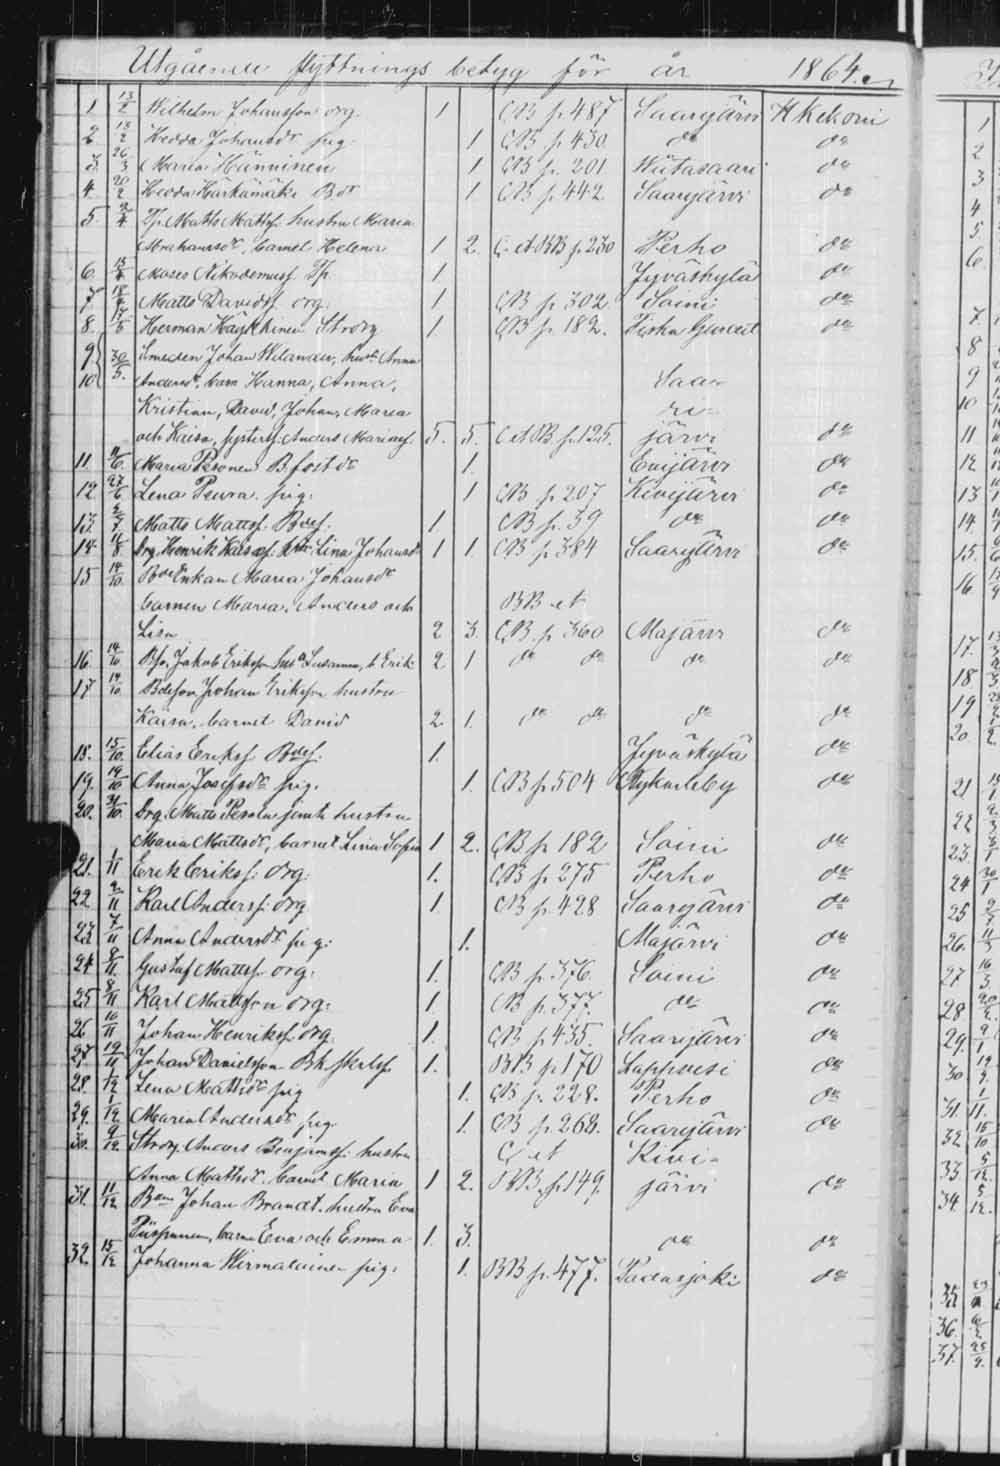 Utgående flyttnings betyg för år 1864.
1 13/2 Wilhelm Johansson drg. 1 CB p 487 Saarijärvi H Kekoni
2. 13/2 Hedda Johansdr pig. 1 CB p 430 do do
3. 26/3 Maria Hänninen 1 CB p. 201 Wiitasaari do
4. 20/2 Hedda Härkämäki Bdr 1 CB p 442 Saarijärvi do
5 2/4 Tp. Matts Mattsf. hustru Maria
Abrahamsdr, barnet Helena 1 2. C. et BB p 230 Perho do
6. Moses Nikodemusf Tp. 1 Jyväskylä do
7 Matts Davidsf. drg. 1 CB p 302 Soini do
8. Herman Häykkinen Strdrg 1 CB p. 182. do
9. 30/5. Smeden Johan Wilander, hust. Anna
10 Andersdr, barn Hanna, Anna, Saa-
Kristian, David, Johan, Maria ri-
och Kaisa, systerf. Anders Mariasf. 5. 5. C et B. p 125. järvi do
11 Maria Pesonen B. fostdr 1. Evijärvi do
12. 27/6 Lena Peura pig. 1 CB p 207 Kivijärvi do
13. Matts Mattsf. Bdef. 1 CB p. 39 do do
14 11/8 Drg. Henrik hstr Lina Johansdr 1 1. CB p 384 Saarijärvi do
15 14/10. Bdeenkan Maria Johansdr
barnen Maria, Anders och BB et
Lisa 2 3. CB. p 360 Alajärvi do
16. 14/10 Bfo. Jakob Eriksson hust Susanna, b Erik 2 1 do do do do
17 14/10 Bdeson Johan Eriksson hustru
Kaisa, barnet David 2 1. do do do do
18. 15/10. Elias Eriksf Bdef. 1. Jyväskylä do
19. 19/10 Anna Josefsdr pig. 1. CB p 504 Nykarleby do
20. 31/10. Drg. Matts Pesola jemte hustru
Maria Mattsdr, barnet Lina Sofia 1 2. CB p 182 Soini do
21. 1/11 Erik Eriksf. drg. 1. CB p. 275 Perho do
22 2/11 Karl Andersf. drg 1 CB p. 428 Saarijärvi do
23 7/11 Anna Andersdr pig. 1. Alajärvi do
24 8/11. Gustaf Mattsf. drg. 1. CB p. 376. Soini do
25 8/11 Karl Mattsson drg. 1. CB p. 377. do do
26 16/11 Johan Henriksf drg. 1. CB p 435. Saarijärvi do
27. 19/11 Johan Danielsson Bk. 1. BB p 170 Lappvesi do
28. 1/12 Lena Mattsdr pig 1. CB p. 228. Perho do
29. 1/12 Maria Andersdr pig. 1. CB p. 268. Saarijärvi do
30. 9/12. Strdrg. Anders Benjamsf. hustru C et Kivi-
Anna Mattsdr. barnet Maria 1 2. BB. p 149. järvi do
31. 11/12 Bdn Johan Brandt. hustru Eva
Piispanen, barn Eva och Emma 1. 3. do do
32. 15/12 Johanna Hirmalainen pig. 1. BB p. 477. Padasjoki do